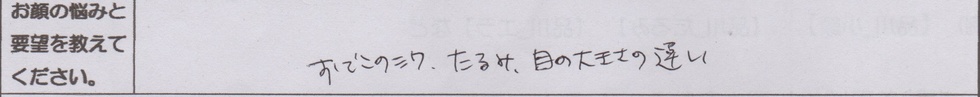 お顔の悩みと
要望を教えて
ください。
おでこのシワ、たるみ、目の大きさの違い